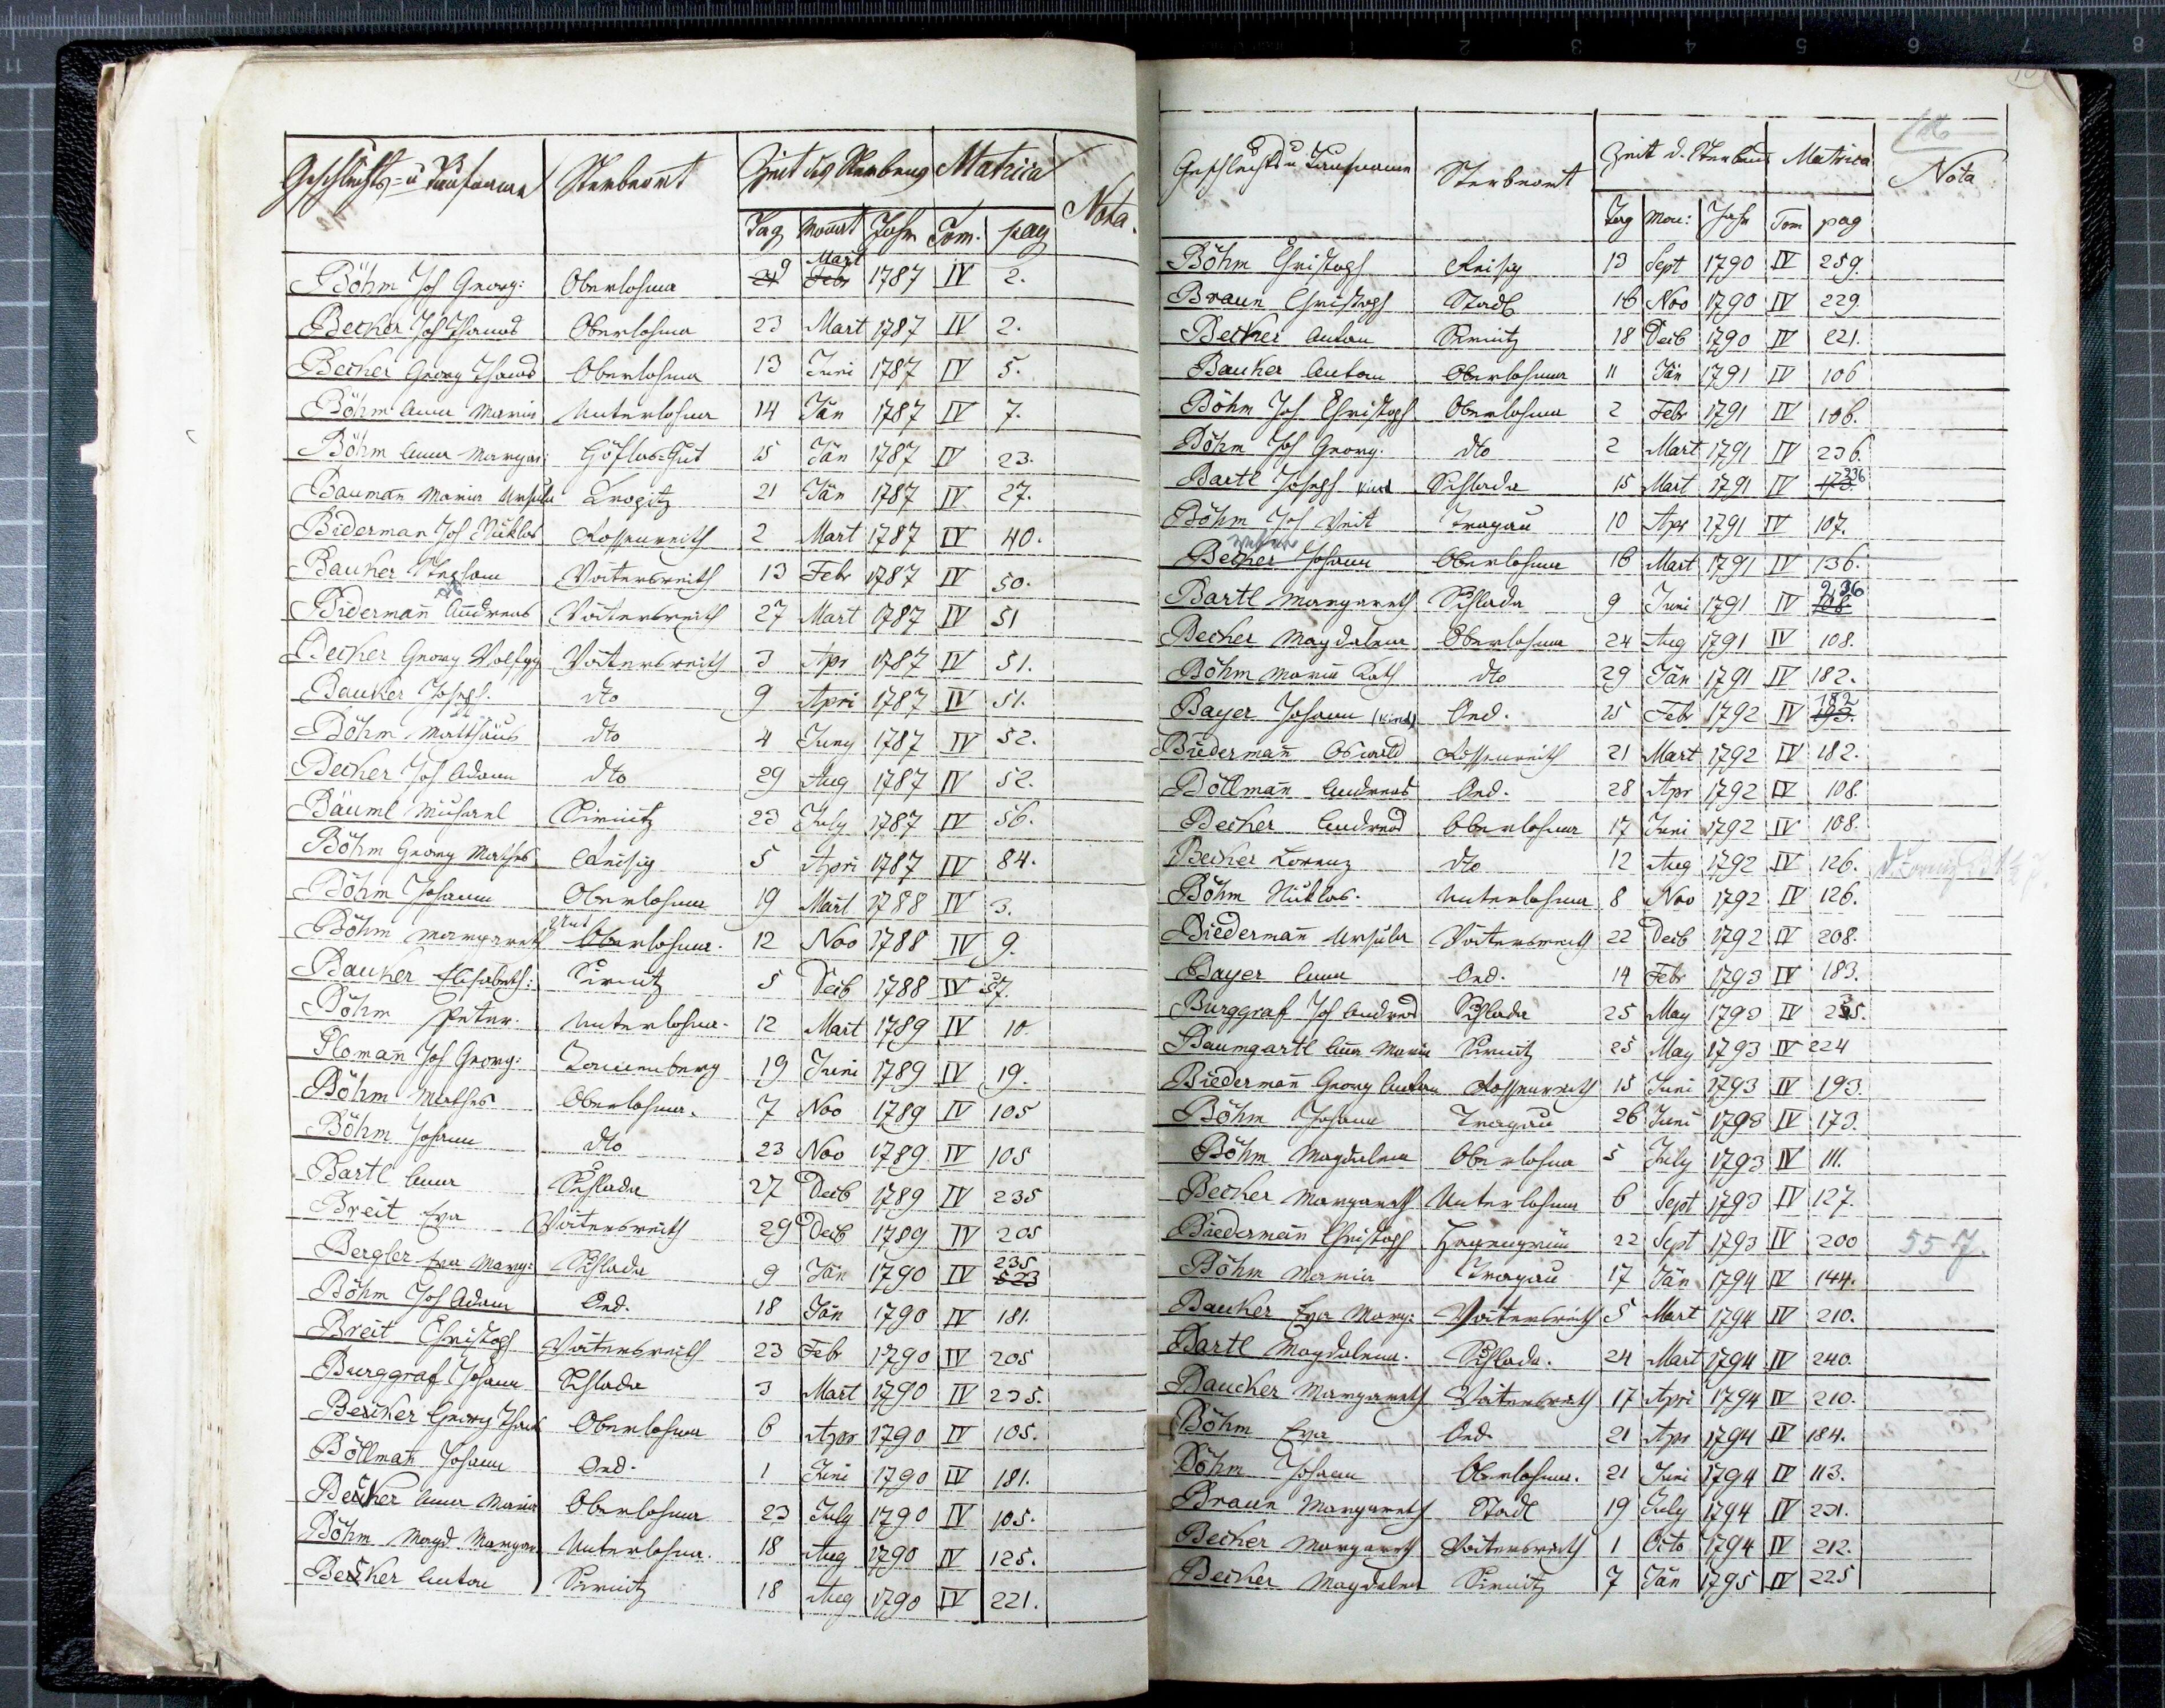 Geschlechts- u Taufname Sterbeort Zeit des Sterbens Matrica Nota.
Tag Monat Jahr Tom. pag
Böhm Joh Georg: Oberlohma 9 Mart 1787 IV 2.
Becher Joh Thomas Oberlohma 23 Mart 1787 IV 2.
Becher Georg Thomas Oberlohma 13 Juni 1787 IV 5.
Böhm Anna Maria Unterlohma 14 Jän 1787 IV 7.
Böhm Anna Margar: Höflas-Gut 15 Jän 1787 IV 23.
Baumañ Maria Ursula Kropitz 21 Jän 1787 IV 27.
Biderman Joh Nicklas Rossenreith 2 Mart 1787 IV 40.
Bauher Stephan Voitersreith 13 Febr 1787 IV 50.
Bidermañ Andreas Voitersreith 27 Mart 1787 IV 51
Becher Georg Wolfgg Voitersreith 3 Apr 1787 IV 51.
Bauher Joseph dto 9 Apri 1787 IV 51.
Böhm Matthäus dto 4 Juny 1787 IV 52.
Becher Joh Adam dto 29 Aug 1787 IV 52.
Bäuml Michael Sirmitz 23 July 1787 IV 56.
Böhm Georg Mathes Reisig 5 Apri 1787 IV 84.
Böhm Johann Oberlohma 19 Mart 1788 IV 3.
Böhm Margareth Unterlohma. 12 Nov 1788 IV 9.
Bauher Elisabeth: Sirmitz 5 Decb 1788 IV 57.
Böhm Peter. Unterlohma. 12 Mart 1789 IV 10.
Plomañ Joh Georg: Tannenberg 19 Juni 1789 IV 19.
Böhm Mathes Oberlohma. 7 Nov 1789 IV 105
Böhm Johann dto 23 Nov 1789 IV 105
Bartl Anna Schlada 27 Decb 1789 IV 235
Breit Eva Voitersreith 29 Decb 1789 IV 205
Bergler Eva Marg: Schlada 9 Jän 1790 IV 235
Böhm Joh Adam Ord. 18 Jän 1790 IV 181.
Breit Christoph Voitersreith 23 Febr 1790 IV 205
Burggraf Johann Schlada 3 Mart 1790 IV 235.
Becher Georg Thomas Oberlohma 6 Apr 1790 IV 105.
Böllmañ Johann Ord. 1 Juni 1790 IV 181.
Becher Anna Maria Oberlohma 23 July 1790 IV 105.
Böhm Magd. Margar. Unterlohma. 18 Aug 1790 IV 125.
Becher Anton Sirmitz 18 Aug 1790 IV 221.
Geschlechts u Taufname Sterbeort Zeit d. Sterbens Matrica Nota
Tag Mon: Jahr Tom pag
Böhm Christoph Reisig 13 Sept 1790 IV 259.
Braun Christoph Stadl 16 Nov 1790 IV 229.
Becher Anton Sirmitz 18 Decb 1790 IV 221.
Bauher Anton Oberlohma 11 Jän 1791 IV 106
Böhm Joh Christoph Oberlohma 2 Febr 1791 IV 106.
Böhm Joh Georg. dto 2 Mart 1791 IV 236.
Bartl Joseph Kind Schlada 15 Mart 1791 IV 236
Böhm Joh Veit Tragau 10 Apr 1791 IV 107.
Becher Johann Oberlohma 16 Mart 1791 IV 136.
Bartl Margareth Schlada 9 Juni 1791 IV 236
Becher Magdalena Oberlohma 24 Aug 1791 IV 108.
Böhm Maria Kath dto 29 Jän 1791 IV 182.
Bayer Johann (Kind) Ord. 25 Febr 1792 IV 182
Biedermañ Oswald Rossenreith 21 Mart 1792 IV 182.
Böllmañ Andreas Ord. 28 Apr 1792 IV 108.
Becher Andreas Oberlohma 17 Juni 1792 IV 108.
Becher Lorenz dto 12 Aug 1792 IV 126.
Böhm Nicklas. Unterlohma 8 Nov 1792 IV 126.
Biedermañ Ursula Voitersreith 22 Decb 1792 IV 208.
Bayer Anna Ord. 14 Febr 1793 IV 183.
Burggraf Joh Andreas Schlada 25 May 1793 IV 235.
Baumgartl Anna Maria Sirmitz 25 May 1793 IV 224
Biedermañ Georg Anton Rossenreith 15 Juni 1793 IV 193.
Böhm Johann Tragau 26 Juni 1793 IV 173.
Böhm Magdalena Oberlohma 5 July 1793 IV 111.
Becher Margareth Unterlohma 6 Sept 1793 IV 127.
Biedermañ Christoph Hagengrün 22 Sept 1793 IV 200 55 J.
Böhm Maria Tragau 17 Jän 1794 IV 144.
Bauher Eva Marg: Voitersreith 5 Mart 1794 IV 210.
Bartl Magdalena. Schlada. 24 Mart 1794 IV 240.
Baucher Margareth Voitersreith 17 Apri 1794 IV 210.
Böhm Eva Ord. 21 Apr 1794 IV 184.
Böhm Johann Oberlohma. 21 Juni 1794 IV 113.
Braun Margareth Stadl 19 July 1794 IV 231.
Becher Margareth Voitersreith 1 Octo 1794 IV 212.
Becher Magdalena Sirmitz 7 Jän 1795 IV 225